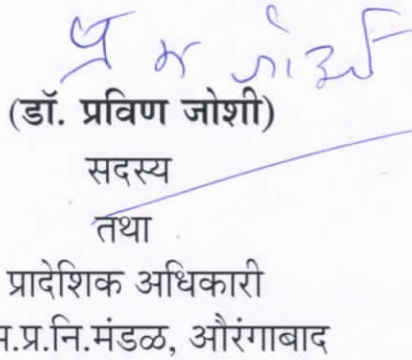 (डॉ. प्रविण जोशी)
सदस्य
तथा
प्रादेशिक अधिकारी
म.प्र.नि.मंडळ, औरंगाबाद